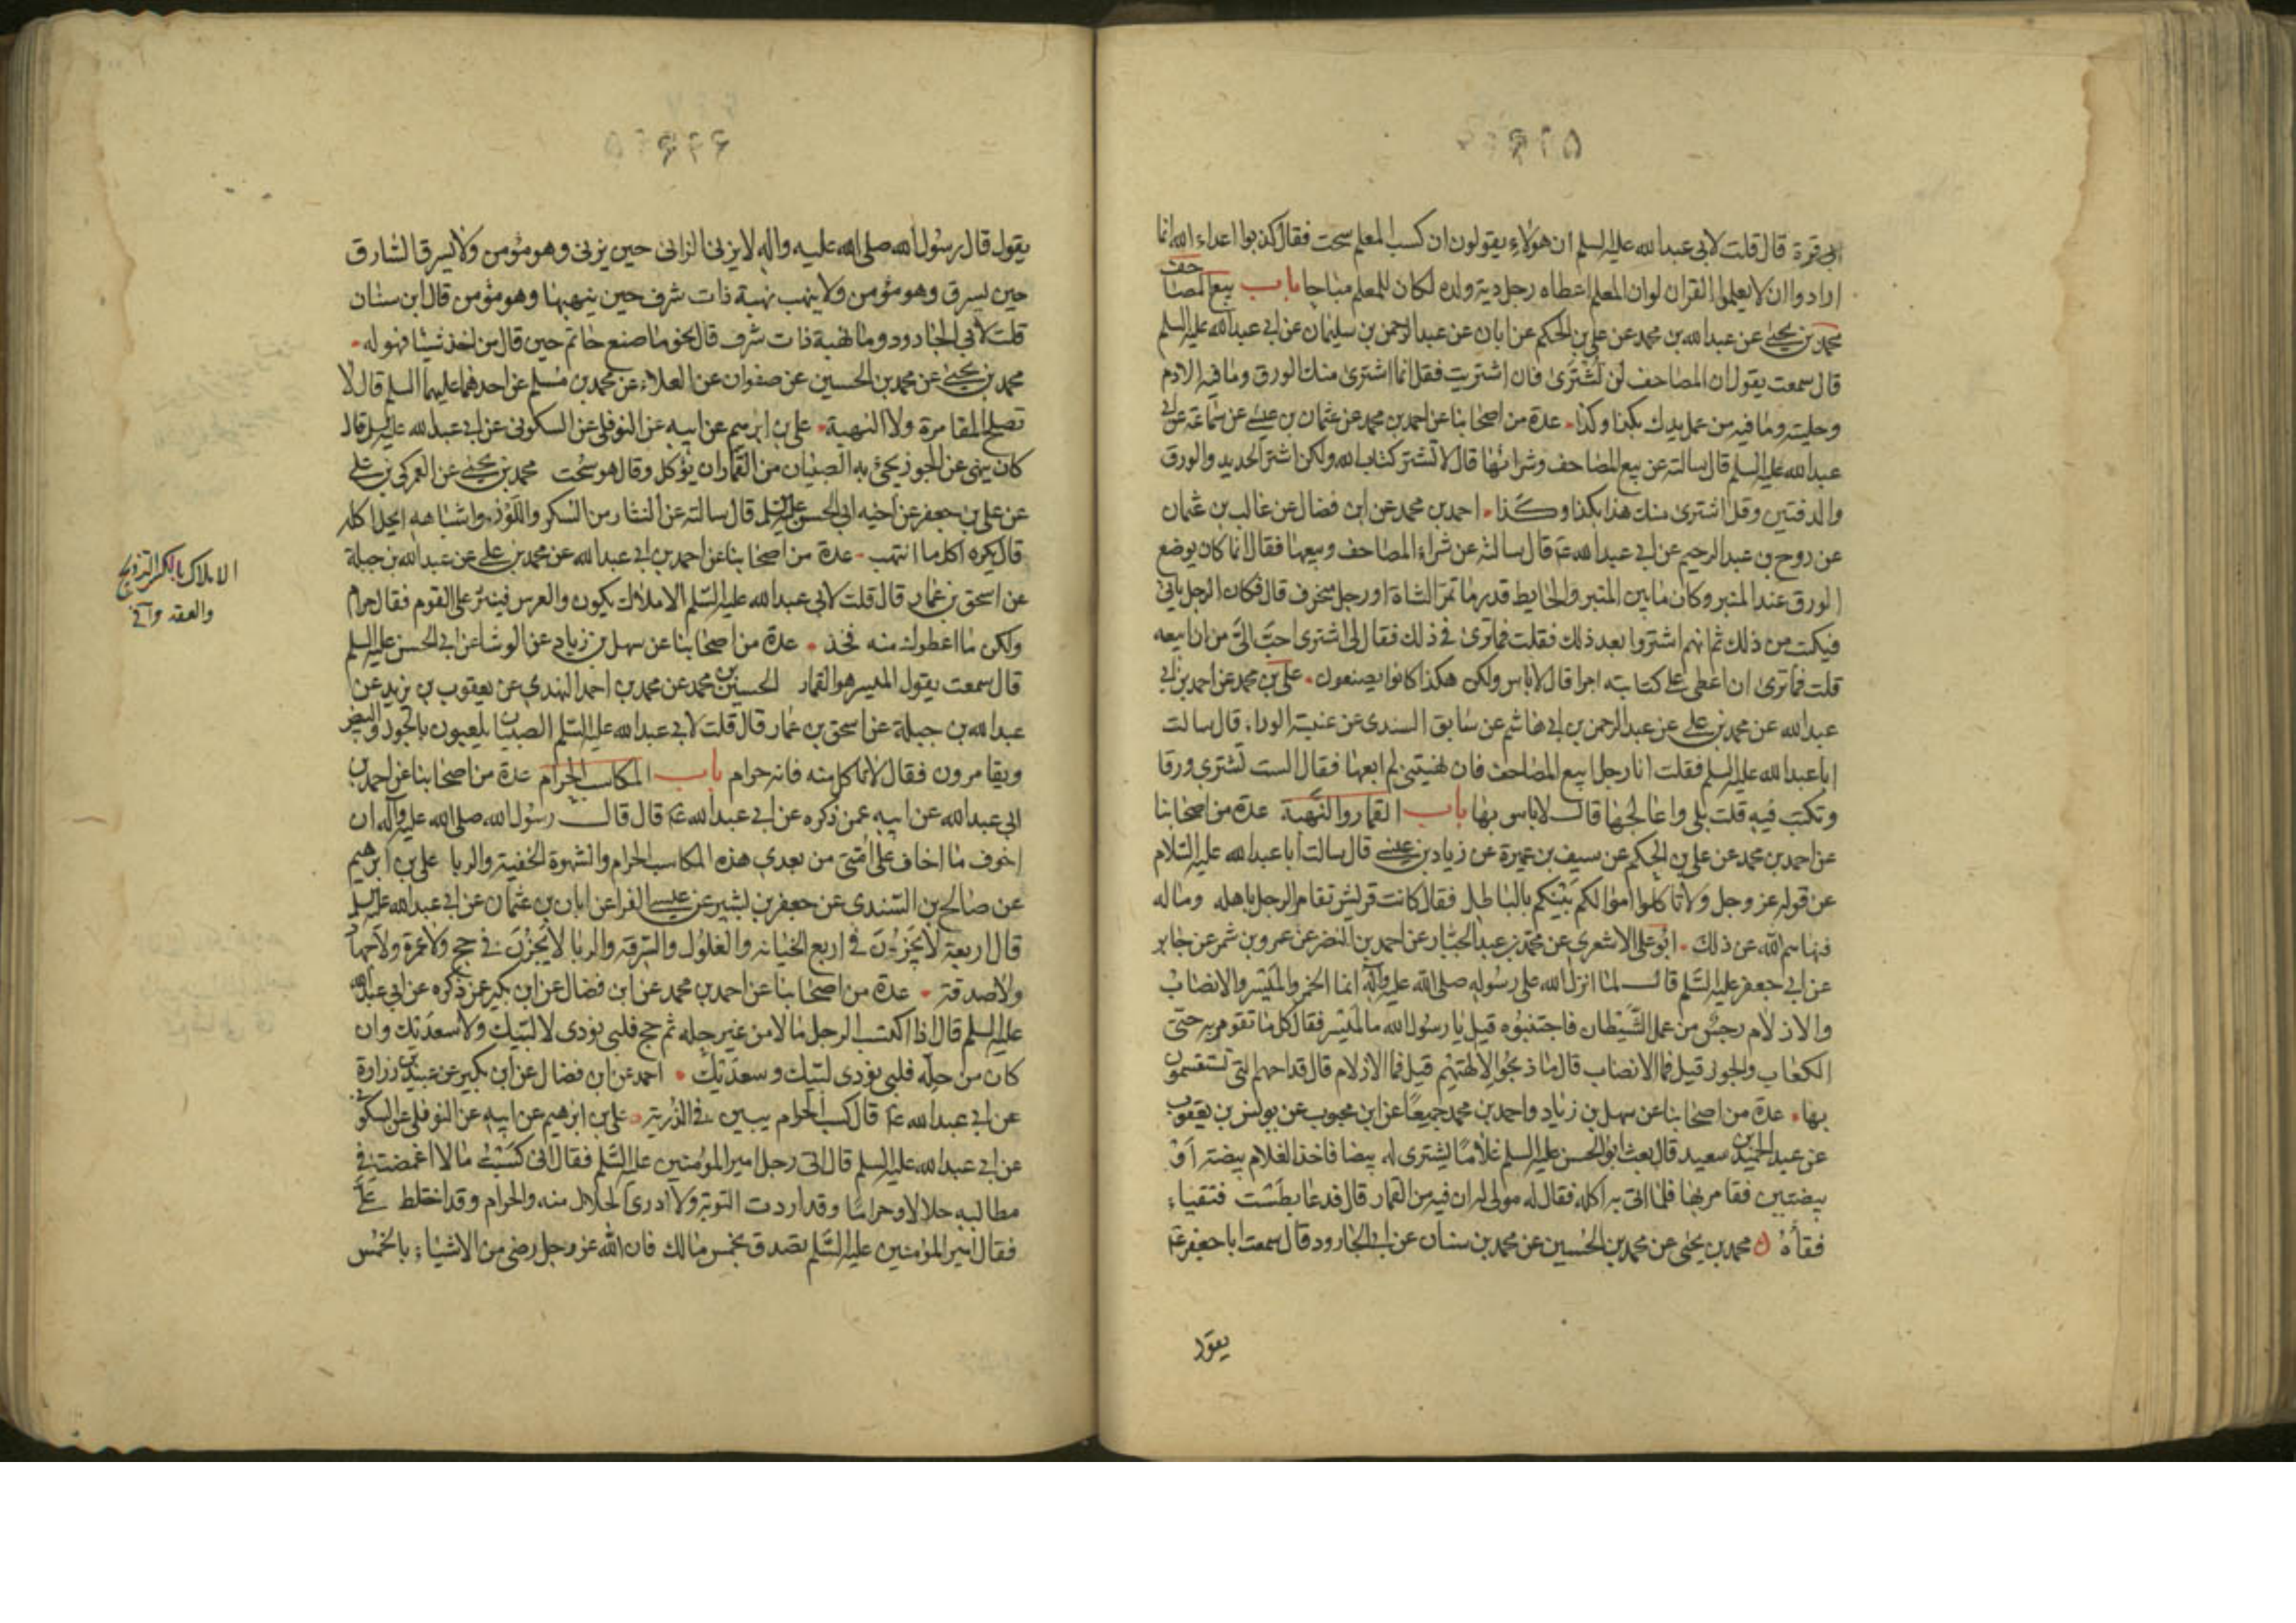 ابى قرة قال قلت لابى عبدالله عليه السلم ان هؤلاء يقولون ان كسب المعلم سحت فقال كذبوا اعداء الله انما
ارادوا ان لا يعلموا القران لو ان المعلم اعطاه رجل دية ولده لكان للمعلم مباحا باب بيع المصاحف
محمد بن يحيى عن عبدالله بن محمد عن على بن الحكم عن ابان عن عبدالرحمن بن سليمان عن ابى عبدالله عليه السلم
قال سمعته يقول ان المصاحف لن تشترى فان اشتريت فقل انما اشترى منك الورق وما فيه الادم
وحليته وما فيه من عمل يدك بكذا وكذا عدة من اصحابنا عن احمد بن محمد عن عثمان بن عيسى عن سماعة عن ابى
عبدالله عليه السلم قال سالته عن بيع المصاحف وشرائها قال لا تشتر كتاب الله ولكن اشتر الحديد والورق
والدفتين وقل اشترى منك هذا بكذا وكذا احمد بن محمد عن ابن فضال عن غالب بن عثمان
عن روح بن عبدالرحيم عن ابى عبدالله ع قال سالته عن شراء المصاحف وبيعها فقال انما كان يوضع
الورق عند المنبر وكان ما بين المنبر والحايط قدر ما تمر الشاة او رجل منحرف قال فكان الرجل ياتى
فيكتب من ذلك ثم انهم اشتروا بعد ذلك فقلت فما ترى فى ذلك فقال لى اشترى احب الى من ان ابيعه
قلت فما ترى ان اعطى على كتابته اجرا قال لا باس ولكن هكذا كانوا يصنعون على بن محمد عن احمد بن ابى
عبدالله عن محمد بن على عن عبدالرحمن بن ابى هاشم عن سابق السندى عن عنبسة الوراق قال سالت
ابا عبدالله عليه السلم فقلت انا رجل ابيع المصاحف فان نهيتنى لم ابعها فقال الست تشترى ورقا
وتكتب فيه قلت بلى واعالجها قال لا باس بها باب القمار والنهبة عدة من اصحابنا
عن احمد بن محمد عن على بن الحكم عن سيف بن عميرة عن زياد بن عيسى قال سالت ابا عبدالله عليه السلام
عن قوله عز وجل ولا تاكلوا اموالكم بينكم بالباطل فقال كانت قريش تقامر الرجل باهله وماله
فنهاهم الله عن ذلك ابو على الاشعرى عن محمد بن عبدالجبار عن احمد بن النضر عن عمرو بن شمر عن جابر
عن ابى جعفر عليه السلم قال لما انزل الله على رسوله صلى الله عليه وآله انما الخمر والميسر والانصاب
والازلام رجس من عمل الشيطان فاجتنبوه قيل يا رسول الله ما الميسر فقال كل ما تقومر به حتى
الكعاب والجوز قيل فما الانصاب قال ما ذبحوا لالهتهم قيل فما الازلام قال قداحهم التى تستقسمون
بها عدة من اصحابنا عن سهل بن زياد واحمد بن محمد جميعا عن ابن محبوب عن يونس بن يعقوب
عن عبدالحميد بن سعيد قال بعث ابو الحسن عليه السلم غلاما يشترى له بيضا فاخذ الغلام بيضة او
بيضتين فقامر بها فلما اتى به اكله فقال له مولى له ان فيه من القمار قال فدعا بطشت فتقياء
فقاه محمد بن يحيى عن محمد بن الحسين عن محمد بن سنان عن ابى الجارود قال سمعت ابا جعفر ع
يقول
يقول قال رسول الله صلى الله عليه واله لا يزنى الزانى حين يزنى وهو مؤمن ولا يسرق السارق
حين يسرق وهو مؤمن ولا ينهب نهبة ذات شرف حين ينهبها وهو مؤمن قال ابن سنان
قلت لابى الجارود وما نهبة ذات شرف قال نحو ما صنع حاتم حين قال من اخذ شيئا فهو له
محمد بن يحيى عن محمد بن الحسين عن صفوان عن العلاء عن محمد بن مسلم عن احدهما عليهما السلم قال لا
تصلح المقامرة ولا النهبة على بن ابرهيم عن ابيه عن النوفلى عن السكونى عن ابى عبدالله عليه السلم قال
كان ينهى عن الجوز يجئ به الصبيان من القمار ان يؤكل وقال هو سحت محمد بن يحيى عن العمركى بن على
عن على بن جعفر عن اخيه ابى الحسن عليه السلم قال سالته عن النثار من السكر واللوز واشباهه ايحل اكله
قال يكره اكل ما انتهب عدة من اصحابنا عن احمد بن ابى عبدالله عن محمد بن على عن عبدالله بن جبلة
عن اسحق بن عمار قال قلت لابى عبدالله عليه السلم الاملاك يكون والعرس فينثر على القوم فقال حرام
ولكن ما اعطوك منه فخذ عدة من اصحابنا عن سهل بن زياد عن الوشا عن ابى الحسن عليه السلم
قال سمعته يقول الميسر هو القمار الحسين بن محمد عن محمد بن احمد النهدى عن يعقوب بن يزيد عن
عبدالله بن جبلة عن اسحق بن عمار قال قلت لابى عبدالله عليه السلم الصبيان يلعبون بالجوز والبيض
ويقامرون فقال لا تاكل منه فانه حرام باب المكاسب الحرام عدة من اصحابنا عن احمد بن
ابى عبدالله عن ابيه عمن ذكره عن ابى عبدالله ع قال قال رسول الله صلى الله عليه وآله ان
اخوف ما اخاف على امتى من بعدى هذه المكاسب الحرام والشهوة الخفية والربا على بن ابرهيم
عن صالح بن السندى عن جعفر بن بشير عن عيسى الفرا عن ابان بن عثمان عن ابى عبدالله عليه السلم
قال اربعة لا يجزن فى اربع الخيانة والغلول والسرقة والربا لا يجزن فى حج ولا عمرة ولا جهاد
ولا صدقة عدة من اصحابنا عن احمد بن محمد عن ابن فضال عن ابن بكير عمن ذكره عن ابى عبدالله
عليه السلم قال اذا اكتسب الرجل مالا من غير حله ثم حج فلبى نودى لا لبيك ولا سعديك وان
كان من حله فلبى نودى لبيك وسعديك احمد عن ابن فضال عن ابن بكير عن عبيد بن زرارة
عن ابى عبدالله ع قال كسب الحرام يبين فى الذرية على بن ابرهيم عن ابيه عن النوفلى عن السكونى
عن ابى عبدالله عليه السلم قال اتى رجل امير المؤمنين عليه السلم فقال انى كسبت مالا اغمضت فى
مطالبه حلالا وحراما وقد اردت التوبة ولا ادرى الحلال منه والحرام وقد اختلط على
فقال امير المؤمنين عليه السلم تصدق بخمس مالك فان الله عز وجل رضى من الاشياء بالخمس
الاملاك بالكسر التزويج
والعقد